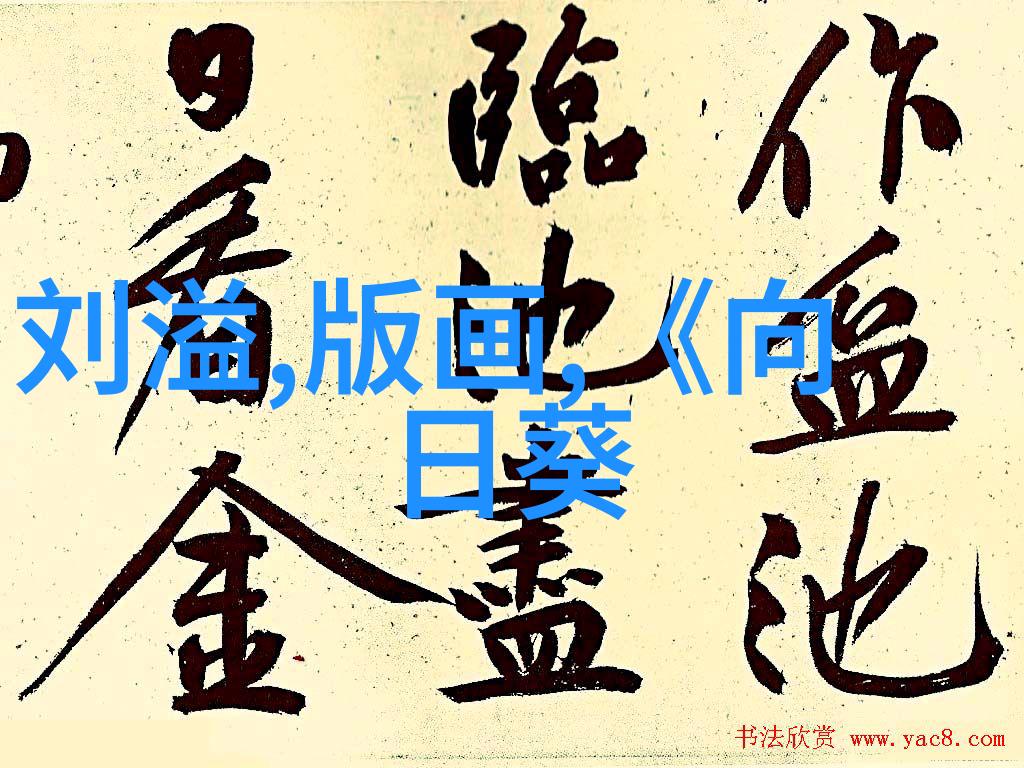 作盆池
臨池盡
日看金
刘溢,版画,《向
日葵
书法欣赏 www.yac8.com